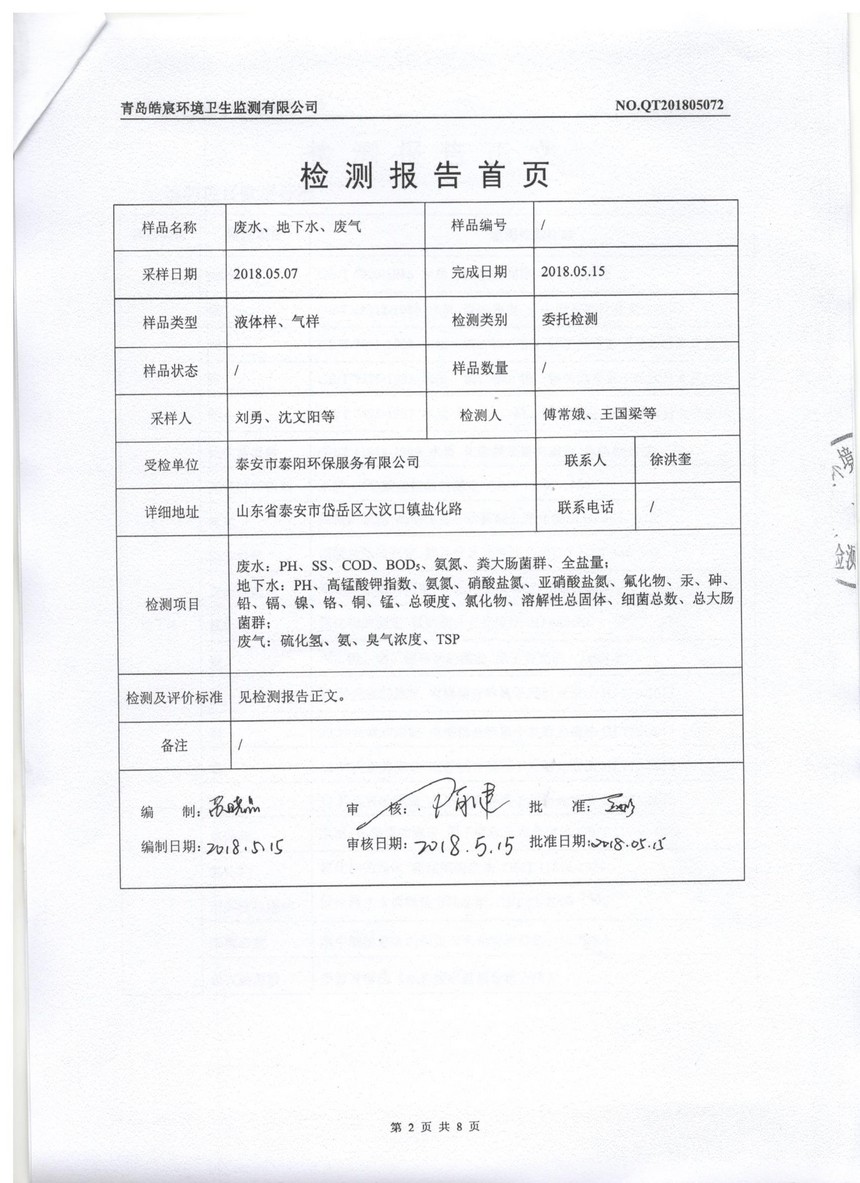 青岛皓宸环境卫生监测有限公司 NO.QT201805072
检测报告首页
样品名称 废水、地下水、废气 样品编号 /
采样日期 2018.05.07 完成日期 2018.05.15
样品类型 液体样、气样 检测类别 委托检测
样品状态 / 样品数量 /
采样人 刘勇、沈文阳等 检测人 傅常娥、王国梁等
受检单位 泰安市泰阳环保服务有限公司 联系人 徐洪奎
详细地址 山东省泰安市岱岳区大汶口镇盐化路 联系电话 /
检测项目
废水：PH、SS、COD、BOD₅、氨氮、粪大肠菌群、全盐量；
地下水：PH、高锰酸钾指数、氨氮、硝酸盐氮、亚硝酸盐氮、氟化物、汞、砷、
铅、镉、镍、铬、铜、锰、总硬度、氯化物、溶解性总固体、细菌总数、总大肠
菌群；
废气：硫化氢、氨、臭气浓度、TSP
检测及评价标准 见检测报告正文。
备注 /
编 制： 审 核： 批 准：
编制日期：2018.5.15 审核日期：2018.5.15 批准日期：2018.05.15
境
检测
第 2 页 共 8 页